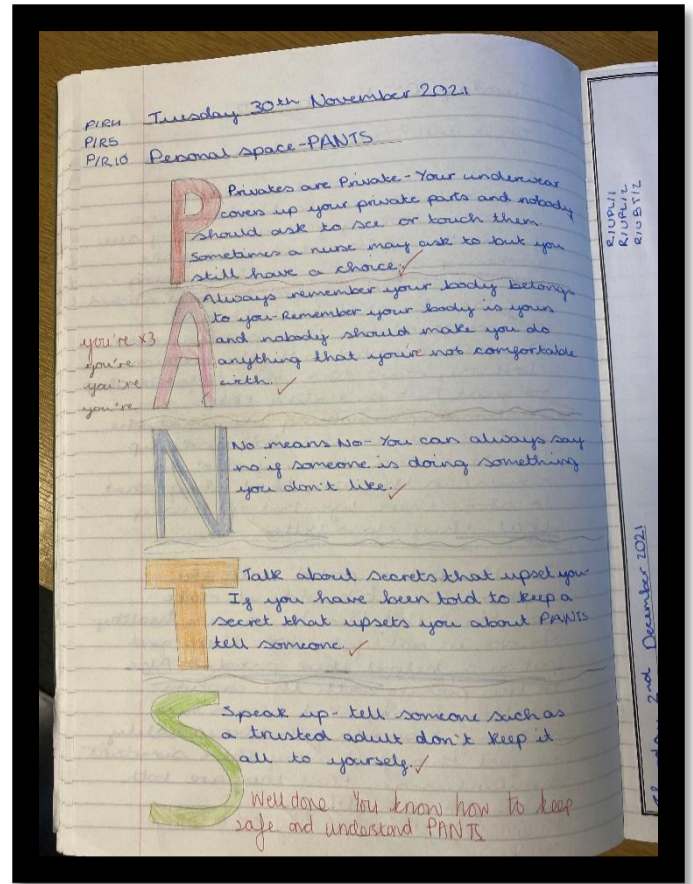 P1R4 Tuesday 30th November 2021
P1R5
P1R10 Pesonal space-PANTS
P
Privates are Private - Your underwear
covers up your private parts and nobody
should ask to see or touch them.
Sometimes a nurse may ask to but you
still have a choice.
A
Always remember your body belongs
to you - Remember your body is yours
and nobody should make you do
anything that you're not comfortable
with.
you're x3
you're
you're
you're
N
No means No - You can always say
no if someone is doing something
you don't like.
T
Talk about secrets that upset you
If you have been told to keep a
secret that upsets you about PANTS
tell someone.
S
Speak up - tell someone such as
a trusted adult don't keep it
all to yourself.
Well done You know how to keep
safe and understand PANTS
2nd December 2021